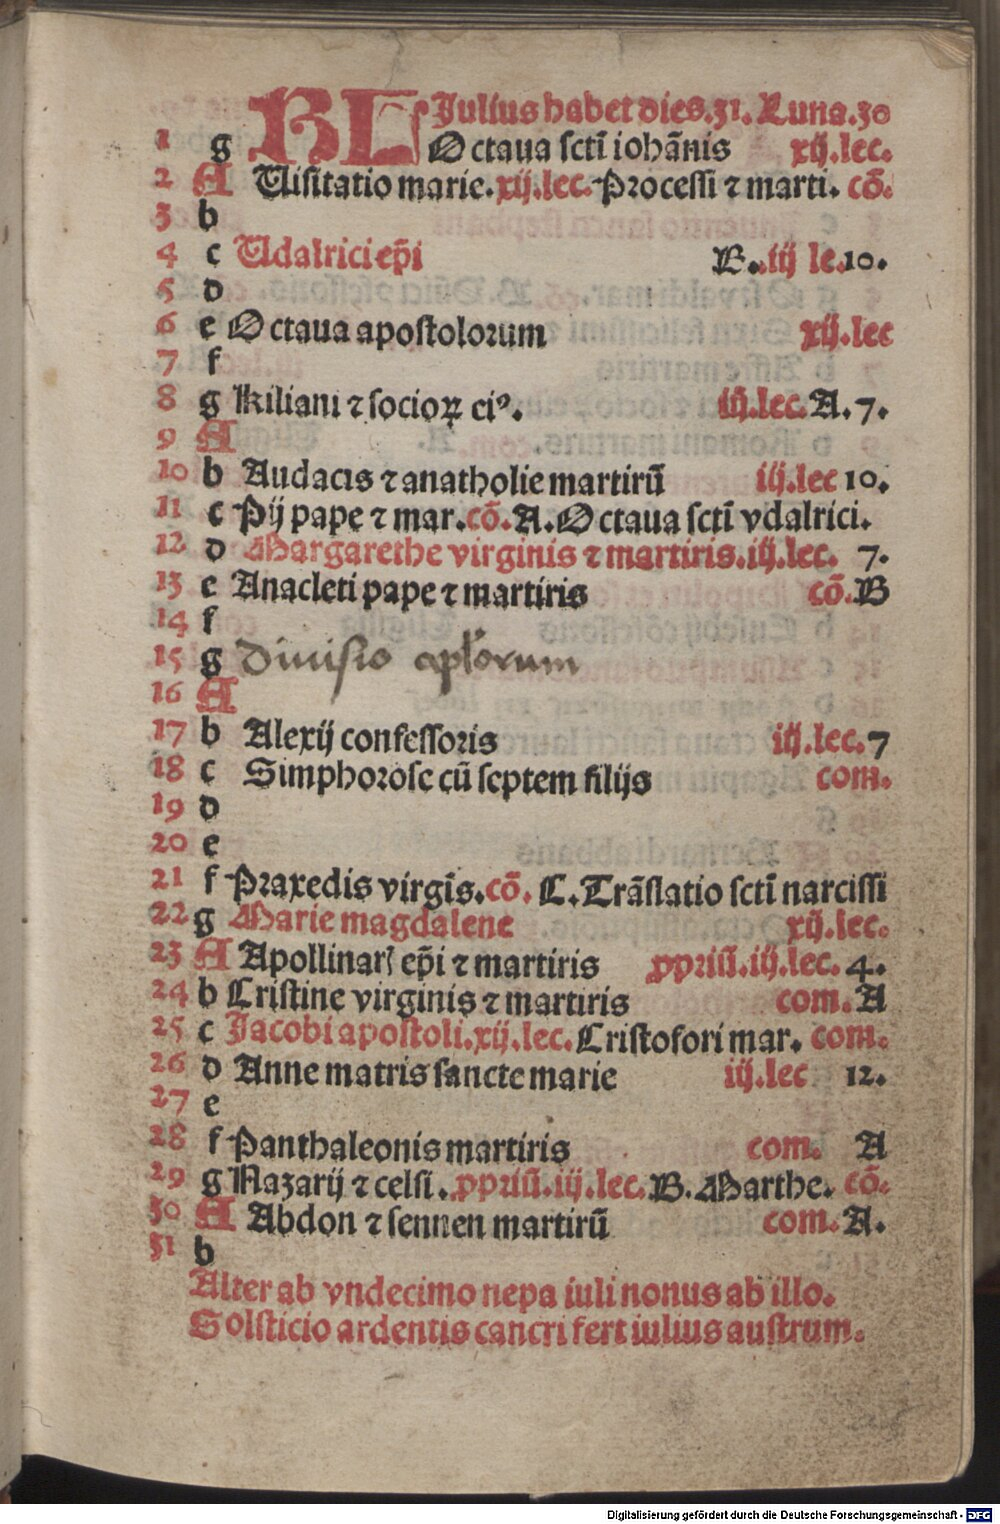 KL Julius habet dies.31. Luna.30
1 g Octaua scti iohānis xij.lec.
2 A Uisitatio marie.xij.lec. Processi ⁊ marti. cō.
3 b
4 c Udalrici ep̄i B..iij le.10.
5 d
6 e Octaua apostolorum xij.lec
7 f
8 g Kiliani ⁊ socioꝝ eiꝰ. iij.lec. A.7.
9 A
10 b Audacis ⁊ anatholie martirū iij.lec 10.
11 c Pij pape ⁊ mar.cō.A.Octaua sctī vdalrici.
12 d Margarethe virginis ⁊ martiris.iij.lec. 7.
13 e Anacleti pape ⁊ martiris cō.B
14 f
15 g diuisio apl'orum
16 A
17 b Alexij confessoris iij.lec.7
18 c Simphorose cū septem filijs com.
19 d
20 e
21 f Praxedis virgīs.cō. C.Trāslatio sctī narcissi
22 g Marie magdalene xij.lec.
23 A Apollinar ep̄i ⁊ martiris ꝓpriū.iij.lec.4.
24 b Cristine virginis ⁊ martiris com.A
25 c Jacobi apostoli.xij.lec.Cristofori mar. com.
26 d Anne matris sancte marie iij.lec 12.
27 e
28 f Panthaleonis martiris com. A
29 g Nazarij ⁊ celsi.ꝓpriū.iij.lec.B.Marthe. cō.
30 A Abdon ⁊ sennen martirū com.A.
31 b
Alter ab vndecimo nepa iuli nonus ab illo.
Solsticio ardentis cancri fert iulius austrum.
Digitalisierung gefördert durch die Deutsche Forschungsgemeinschaft - DFG